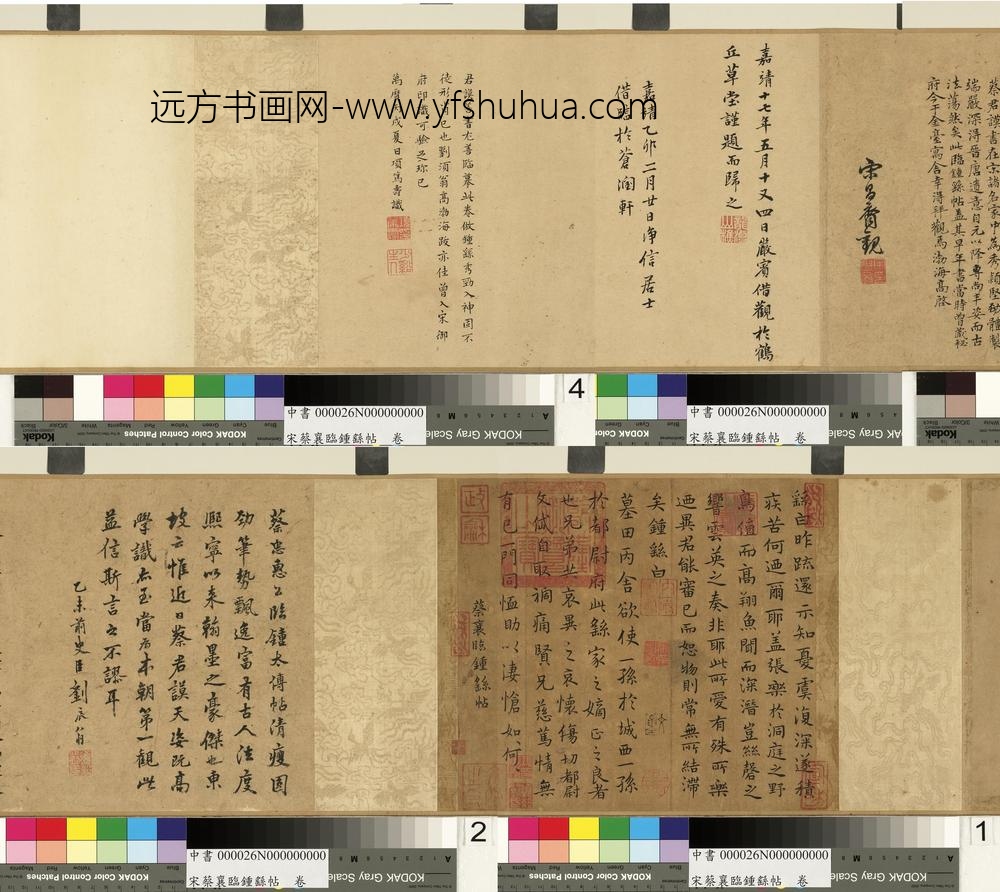 远方书画网-www.yfshuhua.com
蔡君謨書在宋諸名家中為秀穎堅勁體製
端嚴深得晉唐遺意自元以降專尚手姿而古
法蕩然矣此臨鍾繇帖蓋其早年書當時曾藏秘
府今于金臺寓舍幸得拜觀焉渤海高啓
宋昌裔觀
嘉靖十七年五月十又四日嚴賓借觀於鶴
丘草堂謹題而歸之
嘉靖乙卯二月廿日淨信居士
借臨於蒼潤軒
君謨書尤善臨摹此卷倣鍾繇秀勁入神固不
徒形似已也劉須翁高渤海跋亦佳曾入宋御
府印識可驗之珎已
萬曆戌夏日項篤壽識
4
中書 000026N000000000
宋蔡襄臨鍾繇帖 卷
KODAK Gray Scale
KODAK Color Control Patches
Kodak
中書 000026N000000000
宋蔡襄臨鍾繇帖 卷
KODAK Gray Scale
Kodak
繇白昨疏還示知憂虞復深遂積
疾苦何迺爾耶蓋張樂於洞庭之野
鳥值而高翔魚聞而深潛豈絲磬之
響雲英之奏非耶此所愛有殊所樂
迺異君能審己而恕物則常無所結滯
矣鍾繇白
墓田丙舍欲使一孫於城西一孫
於都尉府此繇家之嫡正之良者
也兄弟共哀異之哀懷傷切都尉
文岱自取禍痛賢兄慈篤情無
有已一門同恤助以悽愴如何
蔡襄臨鍾繇帖
蔡忠惠公臨鍾太傅帖清瘦圓
勁筆勢飄逸富有古人法度
熙寧以来翰墨之豪傑也東
坡云惟近日蔡君謨天姿既高
學識亦至當為本朝第一觀此
益信斯言之不謬耳
乙未前史臣劉辰翁
2
1
中書 000026N000000000
宋蔡襄臨鍾繇帖 卷
KODAK Gray Scale
KODAK Color Control Patches
中書 000026N000000000
宋蔡襄臨鍾繇帖 卷
KODAK Gray Scale
KODAK Color Control Patches